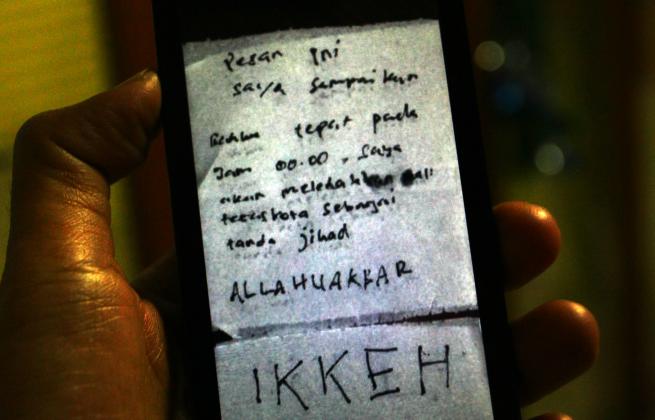 Pesan ini
saya sampaikan
Bahwa tepat pada
Jam 00.00, saya
akan meledakkan
sebagai
tanda jihad
ALLAHUAKBAR
IKKEH